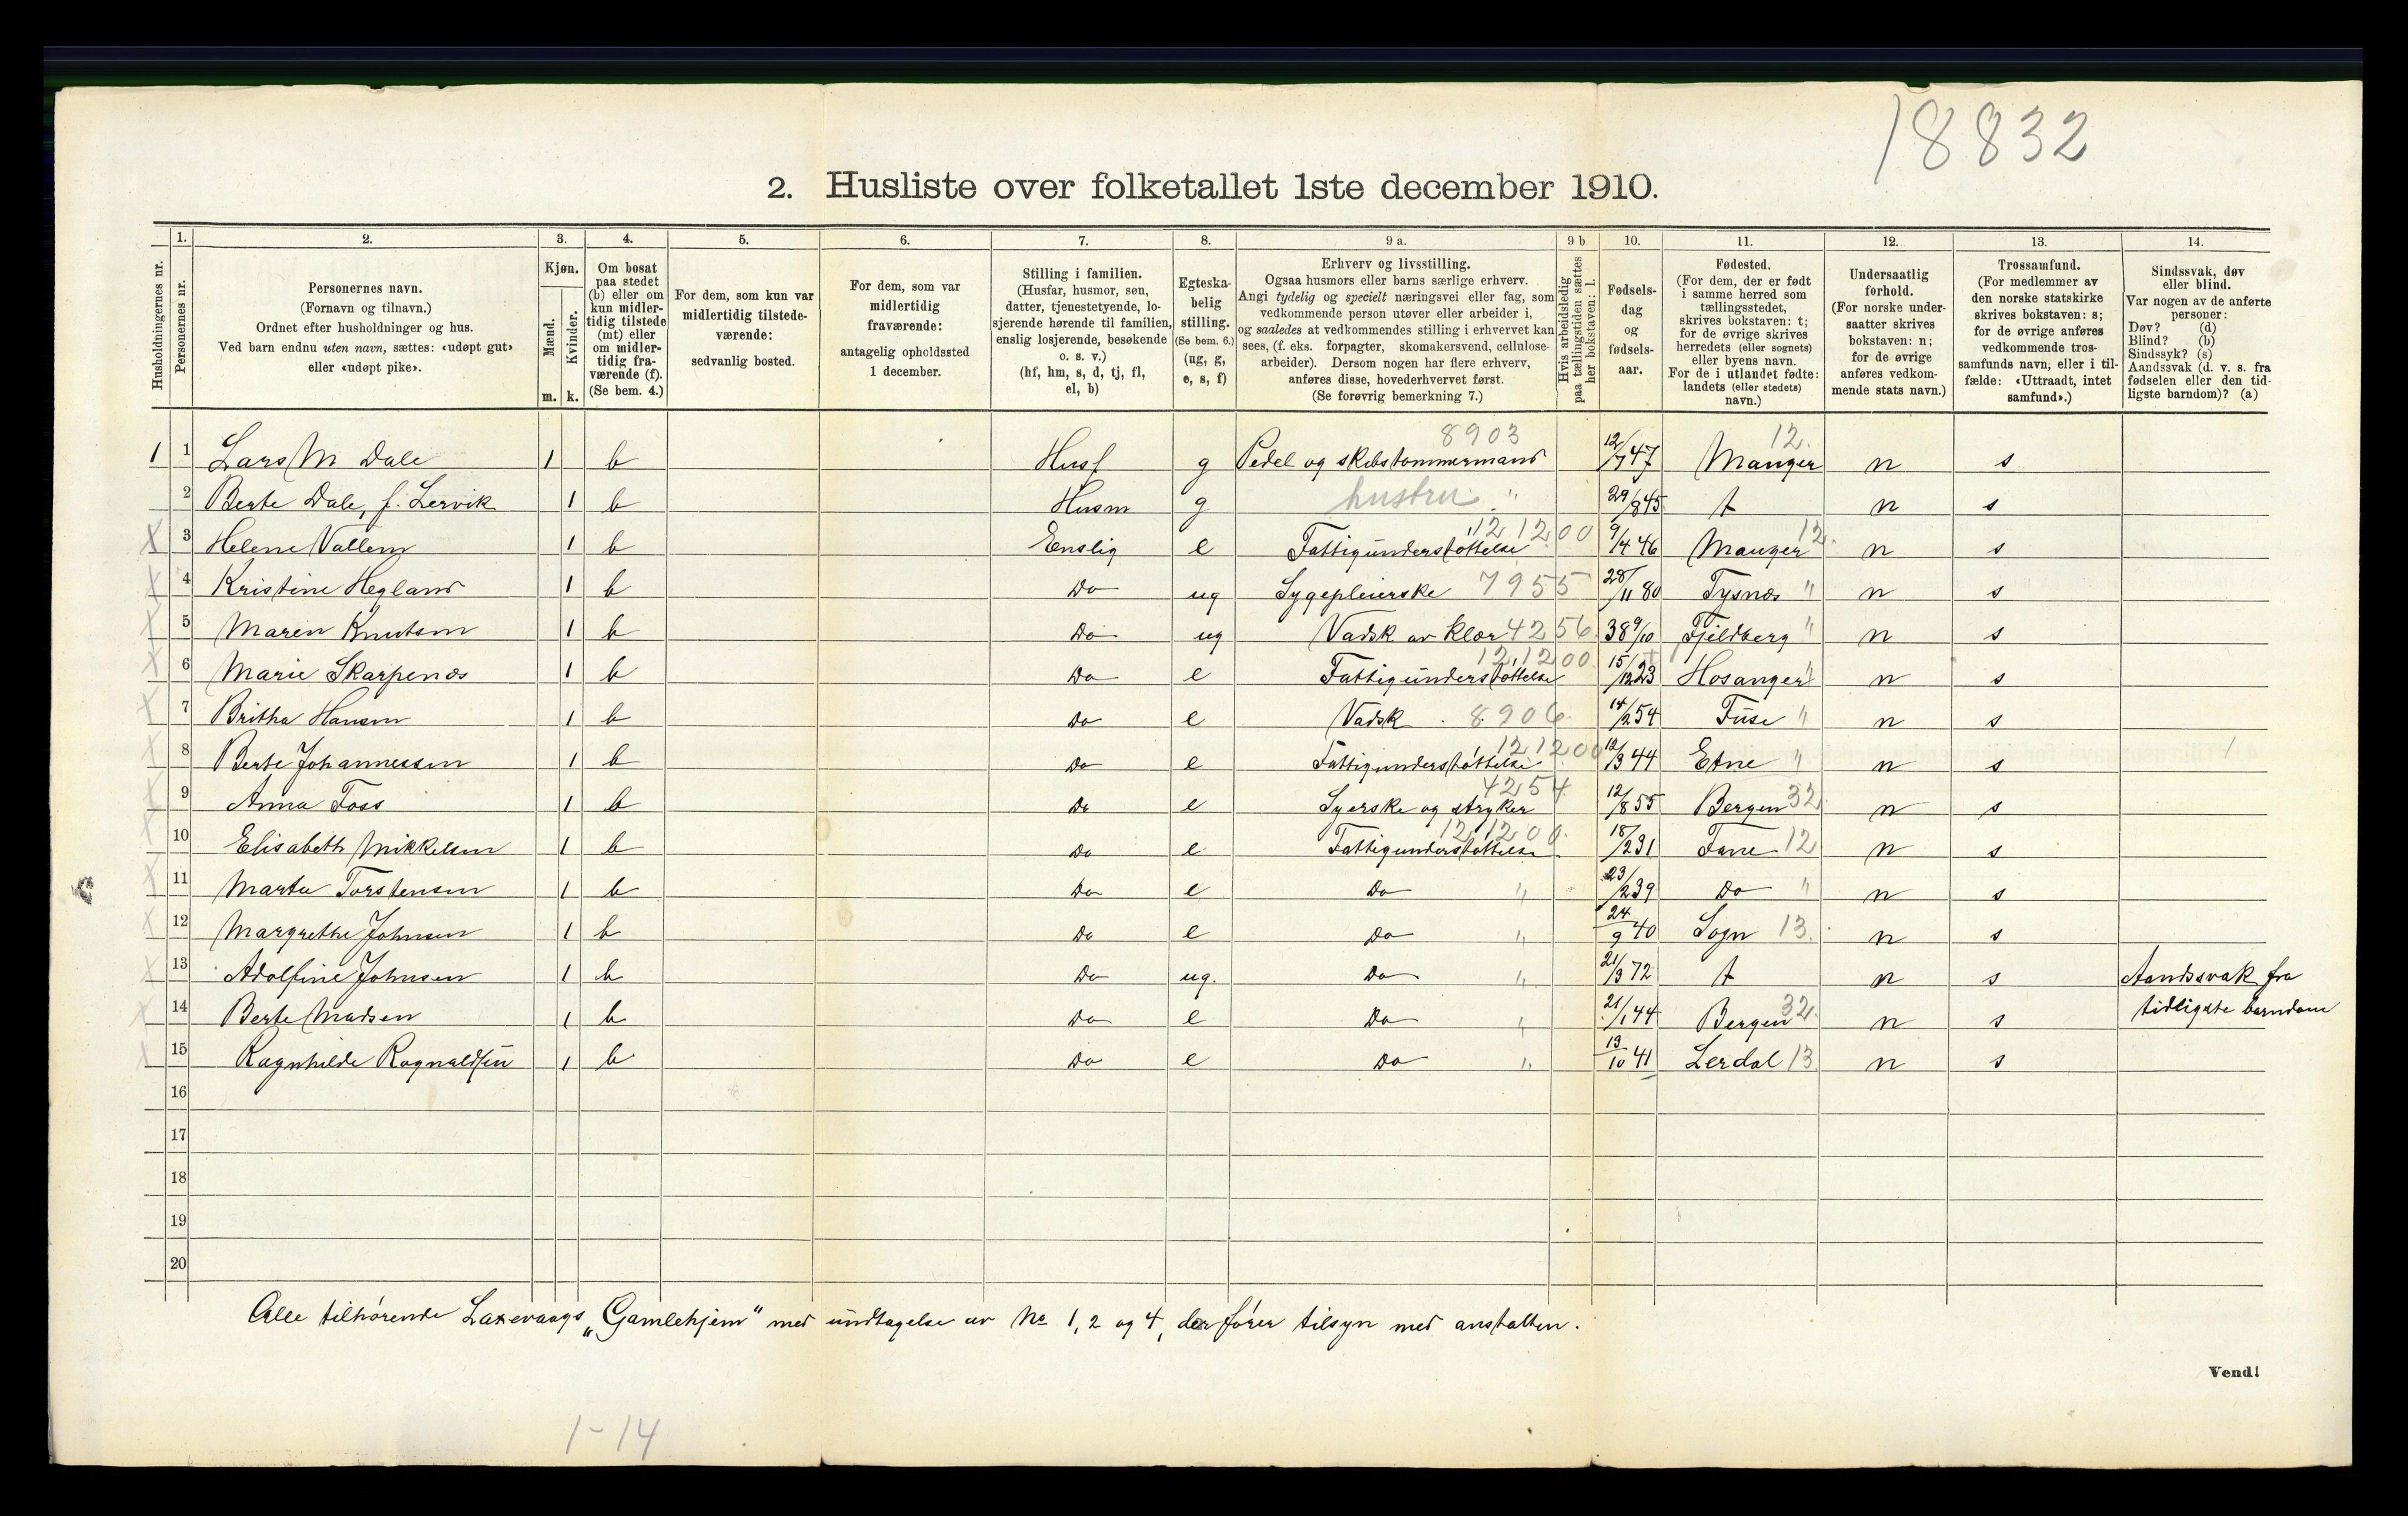 18832
2. Husliste over folketallet 1ste december 1910.
Husholdningernes nr.
1. Personernes nr.
2. Personernes navn. (Fornavn og tilnavn.) Ordnet efter husholdninger og hus. Ved barn endnu uten navn, sættes: «udøpt gut» eller «udøpt pike».
3. Kjøn. Mænd. m. Kvinder. k.
4. Om bosat paa stedet (b) eller om kun midlertidig tilstede (mt) eller om midlertidig fraværende (f). (Se bem. 4.)
5. For dem, som kun var midlertidig tilstedeværende: sedvanlig bosted.
6. For dem, som var midlertidig fraværende: antagelig opholdssted 1 december.
7. Stilling i familien. (Husfar, husmor, søn, datter, tjenestetyende, losjerende hørende til familien, enslig losjerende, besøkende o. s. v.) (hf, hm, s, d, tj, fl, el, b)
8. Egteskabelig stilling. (Se bem. 6.) (ug, g, e, s, f)
9 a. Erhverv og livsstilling. Ogsaa husmors eller barns særlige erhverv. Angi tydelig og specielt næringsvei eller fag, som vedkommende person utøver eller arbeider i, og saaledes at vedkommendes stilling i erhvervet kan sees, (f. eks. forpagter, skomakersvend, cellulosearbeider). Dersom nogen har flere erhverv, anføres disse, hovederhvervet først. (Se forøvrig bemerkning 7.)
9 b Hvis arbeidsledig paa tællingstiden sættes her bokstaven: l.
10. Fødselsdag og fødselsaar.
11. Fødested. (For dem, der er født i samme herred som tællingsstedet, skrives bokstaven: t; for de øvrige skrives herredets (eller sognets) eller byens navn. For de i utlandet fødte: landets (eller stedets) navn.)
12. Undersaatlig forhold. (For norske undersaatter skrives bokstaven: n; for de øvrige anføres vedkommende stats navn.)
13. Trossamfund. (For medlemmer av den norske statskirke skrives bokstaven: s; for de øvrige anføres vedkommende trossamfunds navn, eller i tilfælde: «Uttraadt, intet samfund».)
14. Sindssvak, døv eller blind. Var nogen av de anførte personer: Døv? (d) Blind? (b) Sindssyk? (s) Aandssvak (d. v. s. fra fødselen eller den tidligste barndom)? (a)
8903 12.
1 1 Lars M Dale 1 b Husf g Pedel og skibstømmermand 12/7 47 Manger n s
2 Berte Dale, f. Lervik 1 b Husm g hustru " 29/8 45 t n s
X 3 Helene Vallem 1 b Enslig e Fattigunderstøttelse 121200 9/4 46 Manger 12. n s
X 4 Kristine Hegland 1 b Do ug Sygepleierske 7955 28/11 80 Tysnæs " n s
X 5 Maren Knutsen 1 b Do ug Vadsk av klær 4256 38 9/10 Fjeldberg " n s
X 6 Marie Skarpenæs 1 b Do e Fattigunderstøttelse 121200 15/12 23 Hosanger " n s
X 7 Britha Hansen 1 b Do e Vadsk 8906 14/2 54 Fuse " n s
X 8 Berte Johannessen 1 b Do e Fattigunderstøttelse 121200 12/3 44 Etne " n s
X 9 Anna Foss 1 b Do e Syerske og stryker 4254 12/8 55 Bergen 32 n s
X 10 Elisabeth Mikkelsen 1 b Do e Fattigunderstøttelse 121200 18/2 31 Fane 12 n s
X 11 Marta Torstensen 1 b Do e Do " 23/2 39 Do " n s
X 12 Margrethe Johnsen 1 b Do e Do " 24/9 40 Sogn 13. n s
X 13 Adolfine Johnsen 1 b Do ug. Do " 21/3 72 t n s Aandssvak fra
X 14 Berte Madsen 1 b Do e Do " 21/1 44 Bergen 32 n s tidligste barndom
X 15 Ragnhilde Ragnaldsen 1 b Do e Do " 19/10 41 Lerdal 13 n s
16
17
18
19
20
Alle tilhørende Laxevaags „Gamlehjem" med undtagelse av No 1, 2 og 4, der fører tilsyn med anstalten.
Vend!
1-14